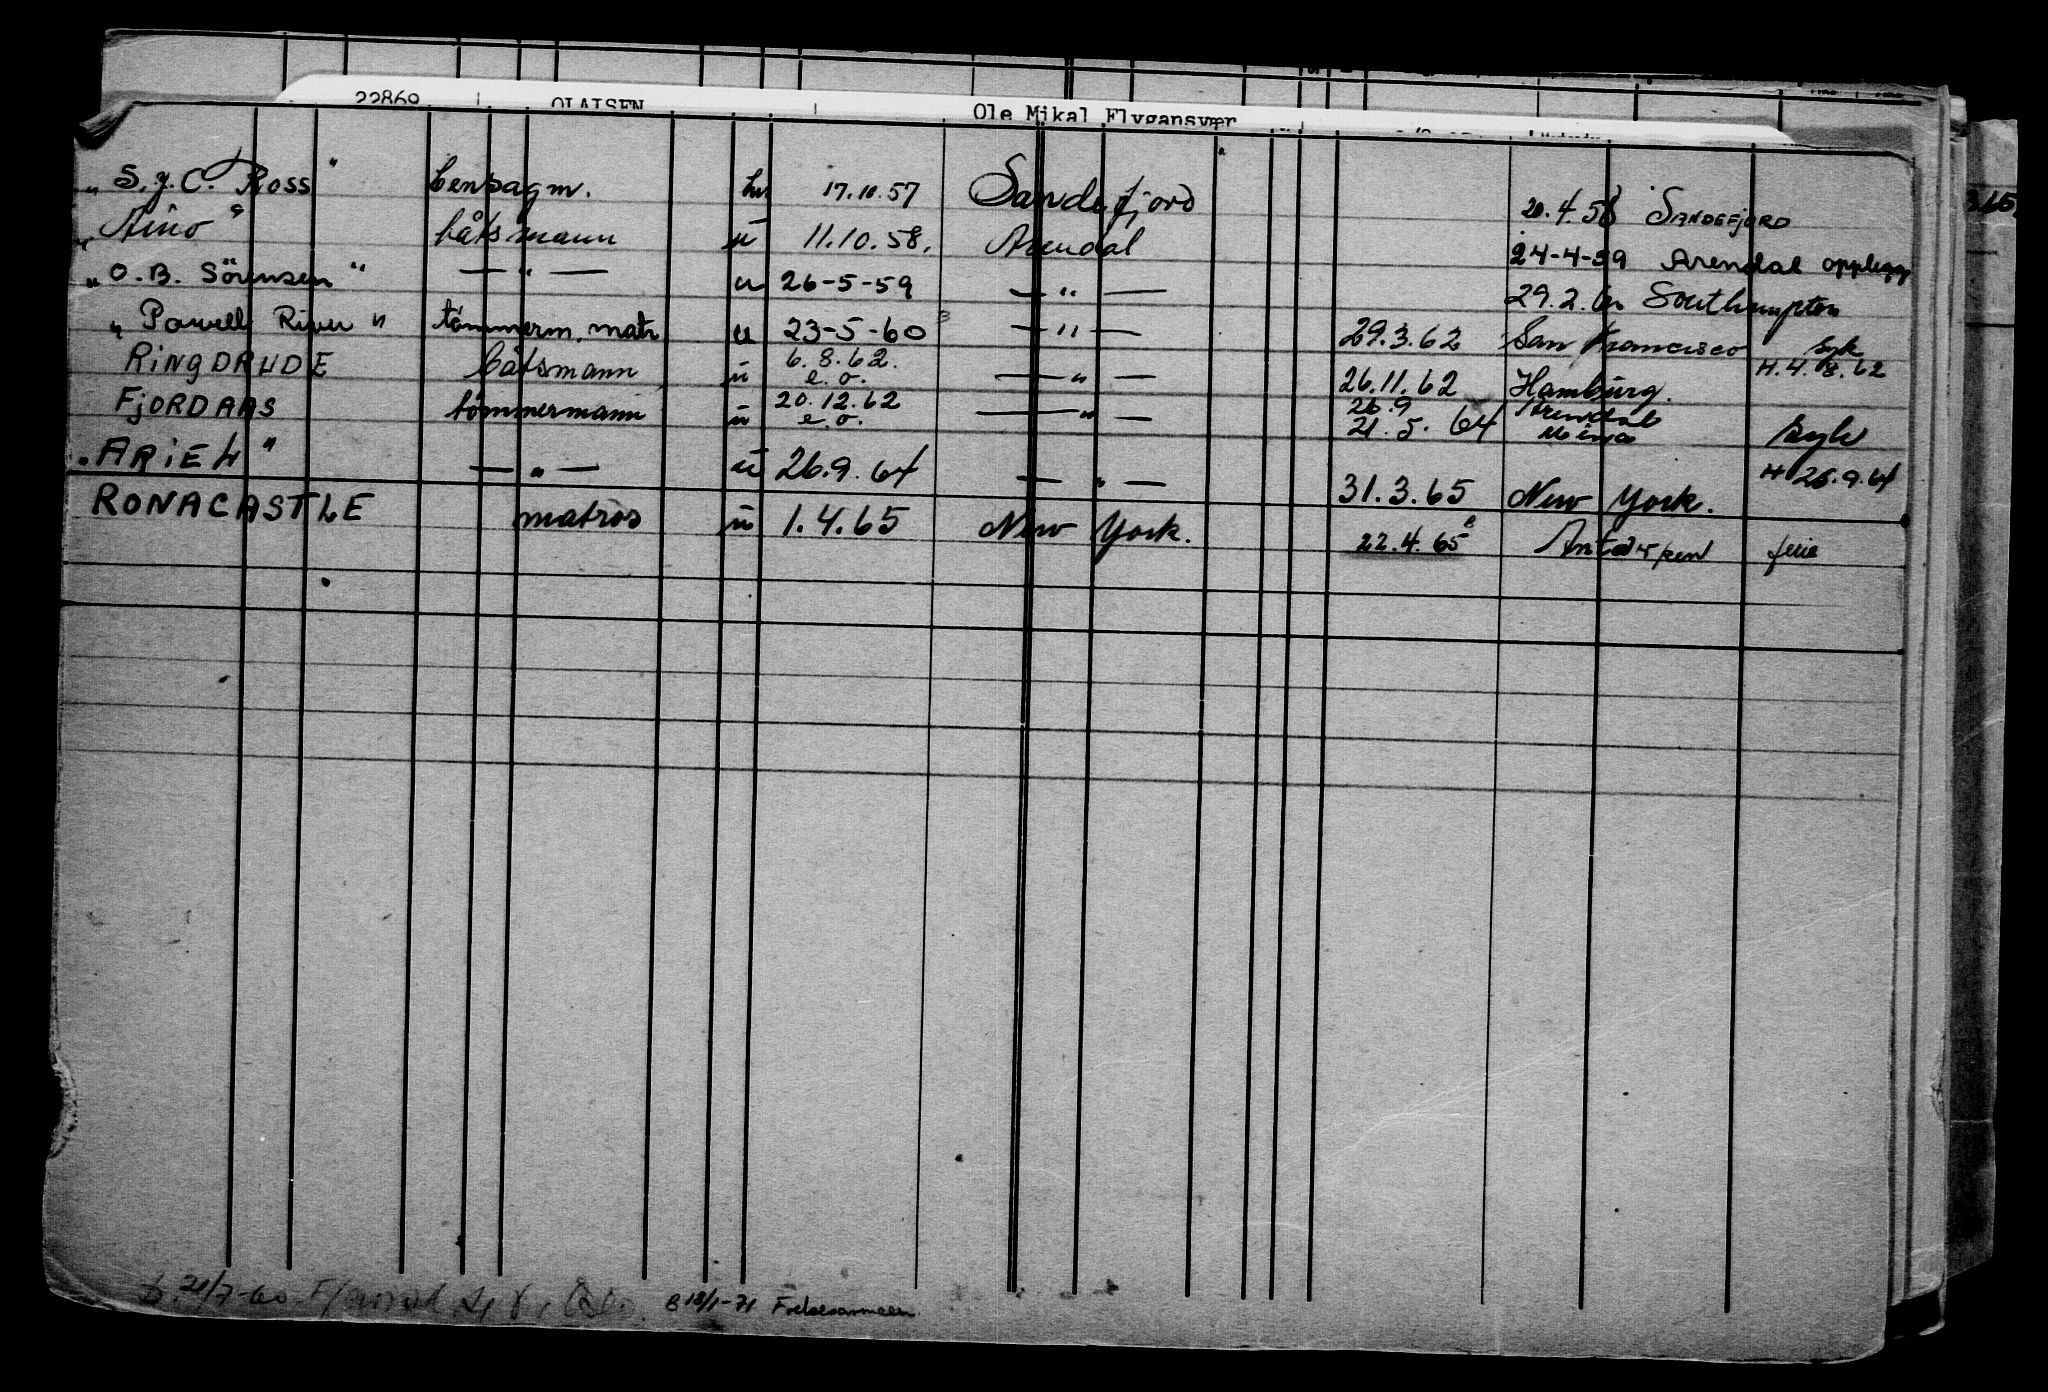 22869 OLAISEN Ole Mikal Flygansvær
„ S.J.C. Ross " hv 17.10.57 Sandefjord 20.4.58 SANDEFJORD
„ Aino " båtsmann u 11.10.58. Arendal 24-4-59 Arendal opplegg
„ O.B. Sörensen " — " — u 26-5-59 — " — 29.2.60 Southampton
„ Powell River " tömmerm. matr u 23-5-60 — " — 29.3.62 San Francisco Syk H.4.8.62
RINGDRUDE båtsmann u 6.8.62. e.o. — " — 26.11.62 Hamburg.
FJORDAAS tömmermann u 20.12.62 e.o. — " — 26.9 21.5.64 Arendal Syk H 26.9.64
„ARIEL" — " — u 26.9.64 — " — 31.3.65 New York.
RONACASTLE matros u 1.4.65 New York. 22.4.65 Antwerpen ferie
21/7-60 Oslo. B 18/1-71 Frelsesarmeen